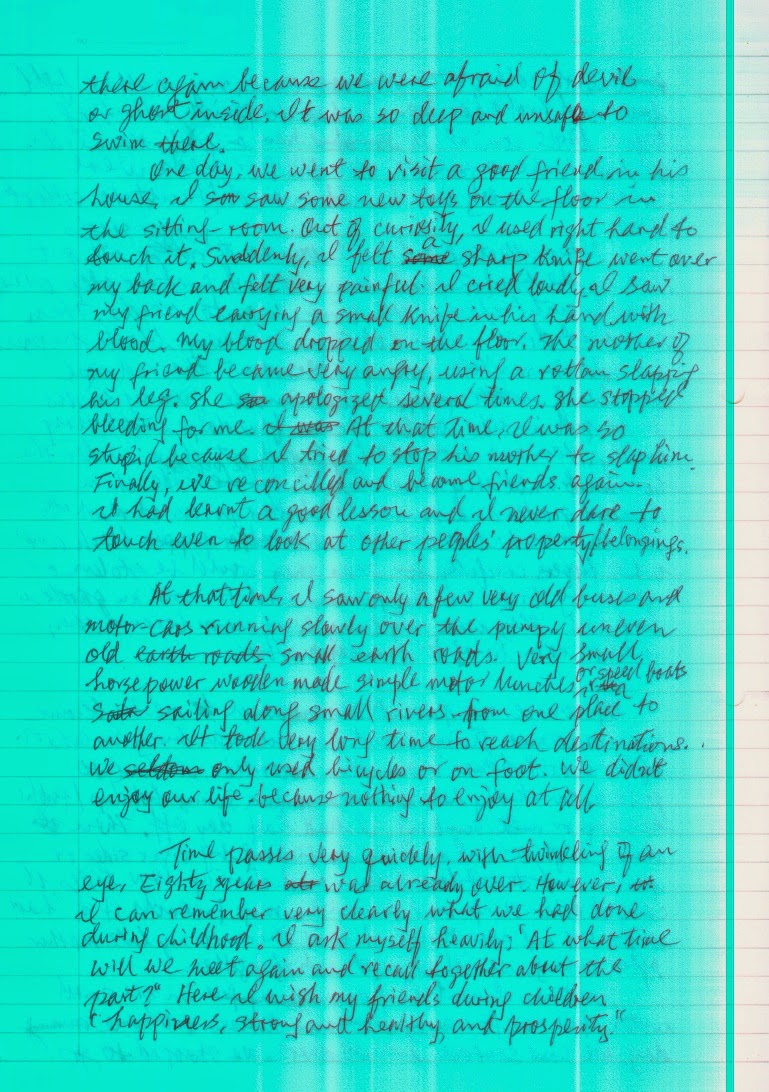 there again because we were afraid of devil
or ghost inside. It was so deep and unsafe to
swim there.
One day, we went to visit a good friend in his
house, I saw some new toys on the floor in
the sitting-room. Out of curiosity, I used right hand to
touch it. Suddenly, I felt a sharp knife went over
my back and felt very painful. I cried loudly, I saw
my friend carrying a small knife in his hand with
blood. My blood dropped on the floor. The mother of
my friend became very angry, using a rottan slapping
his leg. She apologized several times. She stopped
bleeding for me. At that time, I was so
stupid because I tried to stop his mother to slap him.
Finally, we reconcilled and become friends again.
I had learnt a good lesson and I never dare to
touch even to look at other peoples' property/belongings.
At that time, I saw only a few very old buses and
motor-cars running slowly over the pumpy uneven
old earth roads small earth roads. Very small
horsepower wooden made simple motor lunches or speed boats
sailing along small rivers from one place to
another. It took very long time to reach destinations.
We seldom only used bicycles or on foot. We didn't
enjoy our life because nothing to enjoy at all.
Time passes very quickly, with twinkling of an
eye, Eighty years was already over. However,
I can remember very clearly what we had done
during childhood. I ask myself heavily: "At what time
will we meet again and recall together about the
part?" Here I wish my friends during children
"happiness, strong and healthy, and prosperity."